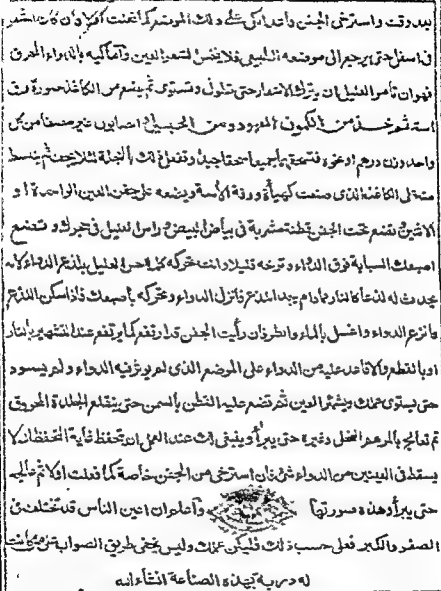 بعد وقت واسترخى الجفن واحتاج الى شىء ذلك الموضع كما فعلت اولا وان كان الشعر
فى اسفل حتى يرجع الى موضعه الطبيعى فلا ينخس لشعر العين واما كيه بالدواء المحرق
فهو ان تامر العليل ان يترك الاشفار حتى تطول وتستوى ثم يصنع من الكاغذ صورة ورقة
اسة ثم خذ من الصابون المعهود ومن الجير غير مطفا من كل
واحد وزن درهم او نحوه فتسحقه جميعا سحقا جيدا وتفعل ذلك بالعجلة لئلا يجف ثم يبسط
منه على الكاغذ الذى صنعت كهيأة ورقة الاسة ويضعه على جفن العين الواحدة او
الاثنين وتضع تحت الجفن قطنة مشربة فى بياض البيض وراس العليل فى حجرك وتضع
اصبعك السبابة فوق الدواء وترخه قليلا وانت تحركه كلما احس العليل بلذع الدواء لانه
يحدث له لذعا كالنار فما دام يجد اللذع فاترك الدواء وتحركه باصبعك فاذا سكن اللذع
فانزع الدواء واغسل بالماء وانظر فان رأيت الجفن قد ارتفع كما يرتفع عند التشمير بالنار
او بالقطع والا فاعد عليه من الدواء على الموضع الذى لم يوثر فيه الدواء ولم يسود
حتى يستوى عملك ويشمر العين ثم تضع عليه القطن بالسمن حتى ينقلع الجلدة المحروق
ثم تعالج بالمرهم النخلى وغيره حتى يبرأ وينبغى لك عند العمل ان تتحفظ غاية التحفظ لئلا
يسقط فى العينين من الدواء شئ فان استرخى من الجفن خاصة كما فعلت اولا ثم عالجه
حتى يبرأ وهذه صورتها واعلم ان اعين الناس قد تختلف فى
الصغر والكبر فعلى حسب ذلك فليكن عملك وليس يخفى طريق الصواب على من كانت
له دربة بهذه الصناعة انشاء الله